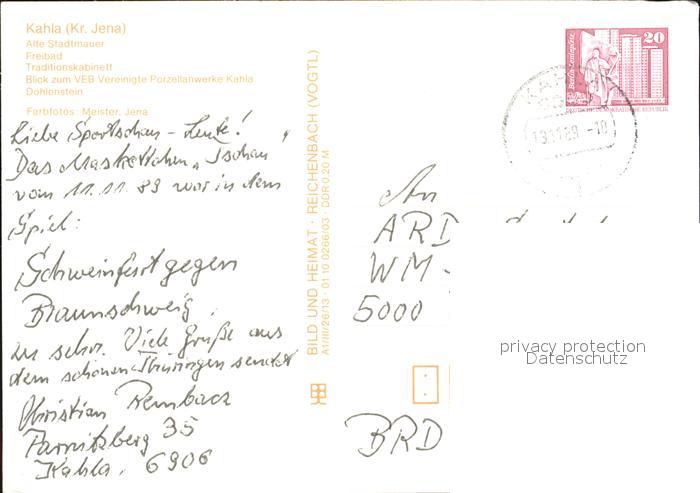 Kahla (Kr. Jena)
Alte Stadtmauer
Freibad
Traditionskabinett
Blick zum VEB Vereinigte Porzellanwerke Kahla
Dohlenstein
Farbfotos: Meister, Jena
Liebe Sportschau-Leute!
Das Maskottchen "Tschau"
vom 11.11.89 war in dem
Spiel:
Schweinfurt gegen
Braunschweig
zu sehn. Viele Grüße aus
dem schönen Thüringen sendet
Christian Rembacz
Parnitzberg 35
Kahla, 6906
BILD UND HEIMAT · REICHENBACH (VOGTL)
A1/III/26/13 · 01 10 0266/03 · DDR 0,20 M
20
DEUTSCHE DEMOKRATISCHE REPUBLIK
KAHLA
An
ARD
WM-
5000
BRD
privacy protection
Datenschutz